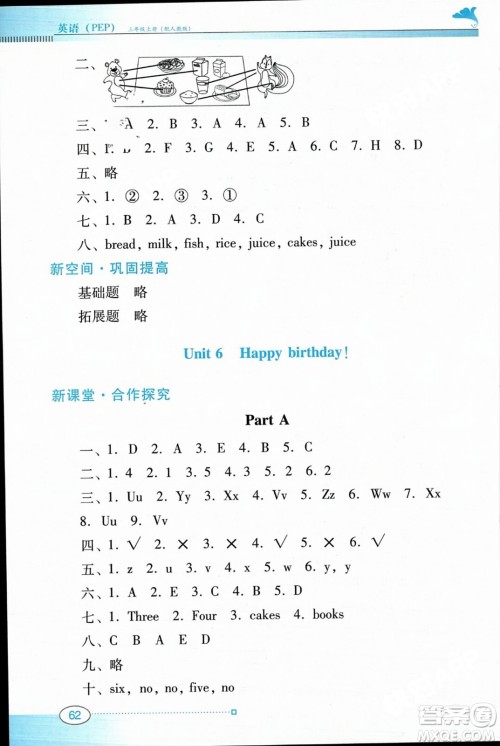 英语（PEP） 三年级上册（配人教版）
二、
三、1. A 2. B 3. A 4. A 5. B
四、1. B 2. C 3. F 4. E 5. A 6. G 7. H 8. D
五、略
六、1. ② 2. ③ 3. ①
七、1. B 2. A 3. D 4. C
八、bread, milk, fish, rice, juice, cakes, juice
新空间·巩固提高
基础题 略
拓展题 略
Unit 6 Happy birthday!
新课堂·合作探究
Part A
一、1. D 2. A 3. E 4. B 5. C
二、1. 4 2. 1 3. 5 4. 2 5. 6 6. 2
三、1. Uu 2. Yy 3. Xx 4. Vv 5. Zz 6. Ww 7. Xx
8. Uu 9. Vv
四、1. ✓ 2. × 3. × 4. ✓ 5. × 6. ✓
五、1. z 2. u 3. v 4. w 5. y, y
六、1. A 2. C 3. A 4. A 5. A
七、1. Three 2. Four 3. cakes 4. books
八、C B A E D
九、略
十、six, no, no, five, no
62
答案圈
MXQE.COM